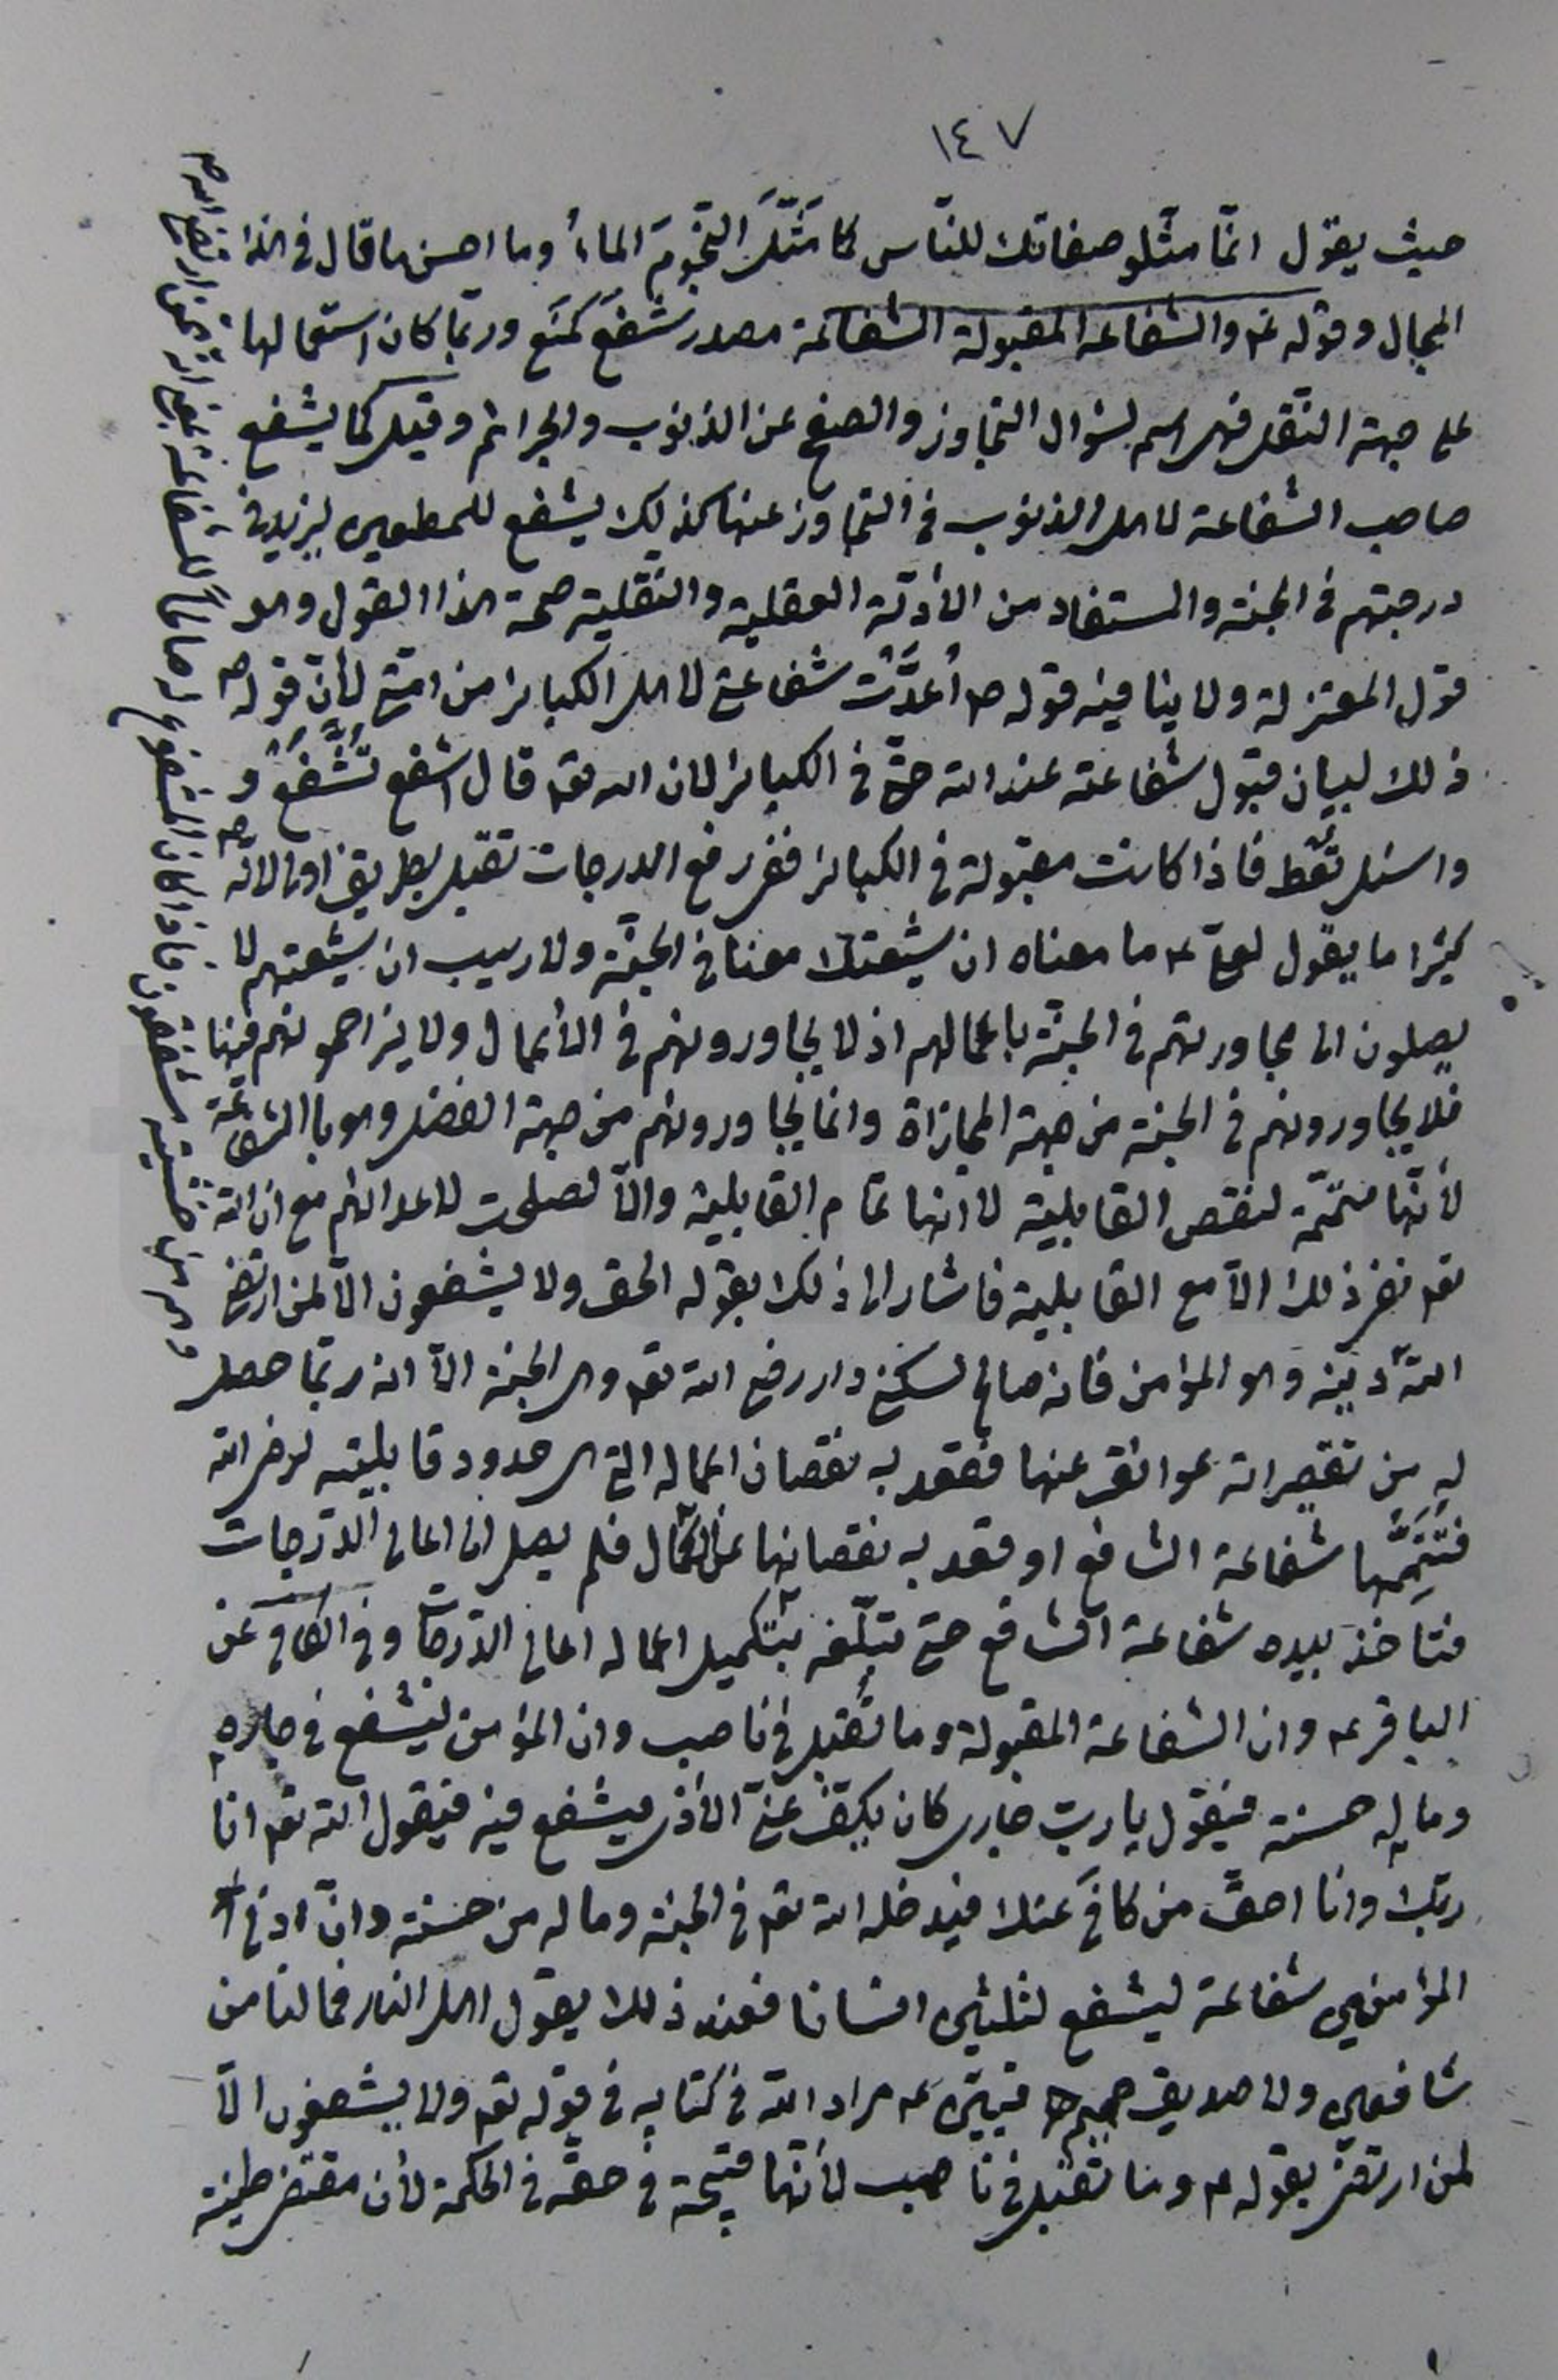 ١٤٧
حيث يقول انّما مثّلو صفاتك للنّاس كما مَثَّلَ النّجومَ الماءُ وما احسن ما قال في هذا
المجال وقوله ع والشفاعة المقبولة الشفاعة مصدر شَفَعَ كمَنَع وربّما كان استعمالها
على جهة النّقل فهى اسم لسؤال التجاوز والصفح عن الذنوب والجرائم وقيل كما يشفع
صاحب الشفاعة لاهل الذنوب في التجاوز عنها كذلك يشفع للمطيعين ليزيد في
درجتهم في الجنة والمستفاد من الأدلّة العقلية والنّقلية صحة هذا القول وهو
قول المعتزلة ولا ينافيه قوله ص اُعدَّتْ شفاعتي لاهل الكبائر من امّتي لأنّ قوله ص
ذلك لبيان قبول شفاعته عند الله حتّى في الكبائر لان الله تعه قال اشفع تُشَّفعْ و
واسئل تُعْطَ فاذا كانت مقبولة في الكبائر ففى رفع الدرجات تقبل بطريق اولى لانّه ص
كثيرا ما يقول لعلي ع ما معناه ان شيعتك معنا في الجنّة ولا ريب ان شيعتهم لا
يصلون الى مجاورتهم في الجنّة باعمالهم اذ لا يجاورونهم في الأعمال ولا يزاحمونهم فيها
فلا يجاورونهم في الجنة من جهة المجازاة وانما يجاورونهم من جهة الفضل وهو بالشفاعة
لأنّها متمّمة لنقص القابلية لا انها تمام القابلية والّا لصلحت لاعدائهم مع ان الله
تعه نفى ذلك الّا مع القابلية فاشار الى ذلك بقوله الحق ولا يشفعون الّا لمن ارتضى
اللهُ دينه وهو المؤمن فانه صالح لسكنى دار رضى الله تعه وهى الجنة الّا انه ربّما حصل
له من تقصيراته عوائق عنها فقعد به نقصان اعماله التي هى حدود قابليته لرضى الله
فتتمّها شفاعة الشافع او قعد به نقصانها عن الكمال فلم يصل الى اعالى الدّرجات
فتأخذ بيده شفاعة الشافع حتى تبلّغه بتكميل اعماله اعالى الدّرجات وفي الكافى عن
الباقر ع وان الشفاعة المقبولة وما تُقبل في ناصب وان المؤمن ليشفع في جاره
وما له حسنة فيقول يا ربّ جارى كان يكفّ عنّى الأذى فيشفع فيه فيقول الله تعه انا
ربّك وانا احقّ من كافى عنك فيدخله الله تعه في الجنة وما له من حسنة وانّ ادنى
المؤمنين شفاعة ليشفع لثلثين انسانا فعند ذلك يقول اهل النار فما لنا من
شافعين ولا صديق حميم فبيّن ع مراد الله في كتابه في قوله تعه ولا يشفعون الّا
لمن ارتضى بقوله ع وما تُقبل في ناصب لأنّها قبيحة في حقّه في الحكمة لأن مقتضى طينة
وهم من خشيته مشفقون فاذا كان المشفوع له صالحا للشفاعة